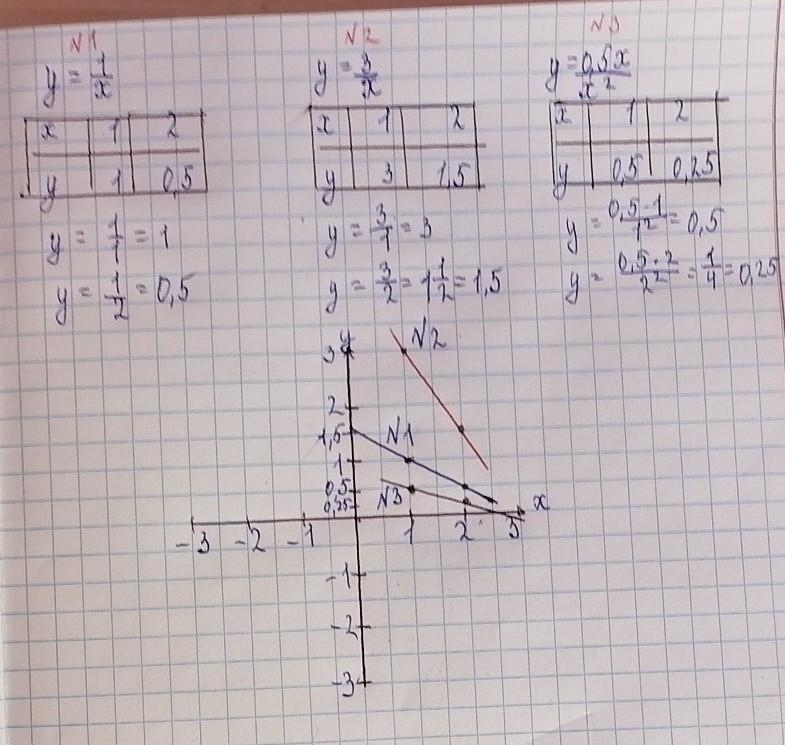 N1
y = 1/x
x 1 2
y 1 0,5
y = 1/1 = 1
y = 1/2 = 0,5
N2
y = 3/x
x 1 2
y 3 1,5
y = 3/1 = 3
y = 3/2 = 1 1/2 = 1,5
N3
y = 0,5x/x²
x 1 2
y 0,5 0,25
y = 0,5·1/1² = 0,5
y = 0,5·2/2² = 1/4 = 0,25
y
3
N2
2
1,5
N1
1
0,5
0,25
N3
x
-3 -2 -1 1 2 3
-1
-2
-3